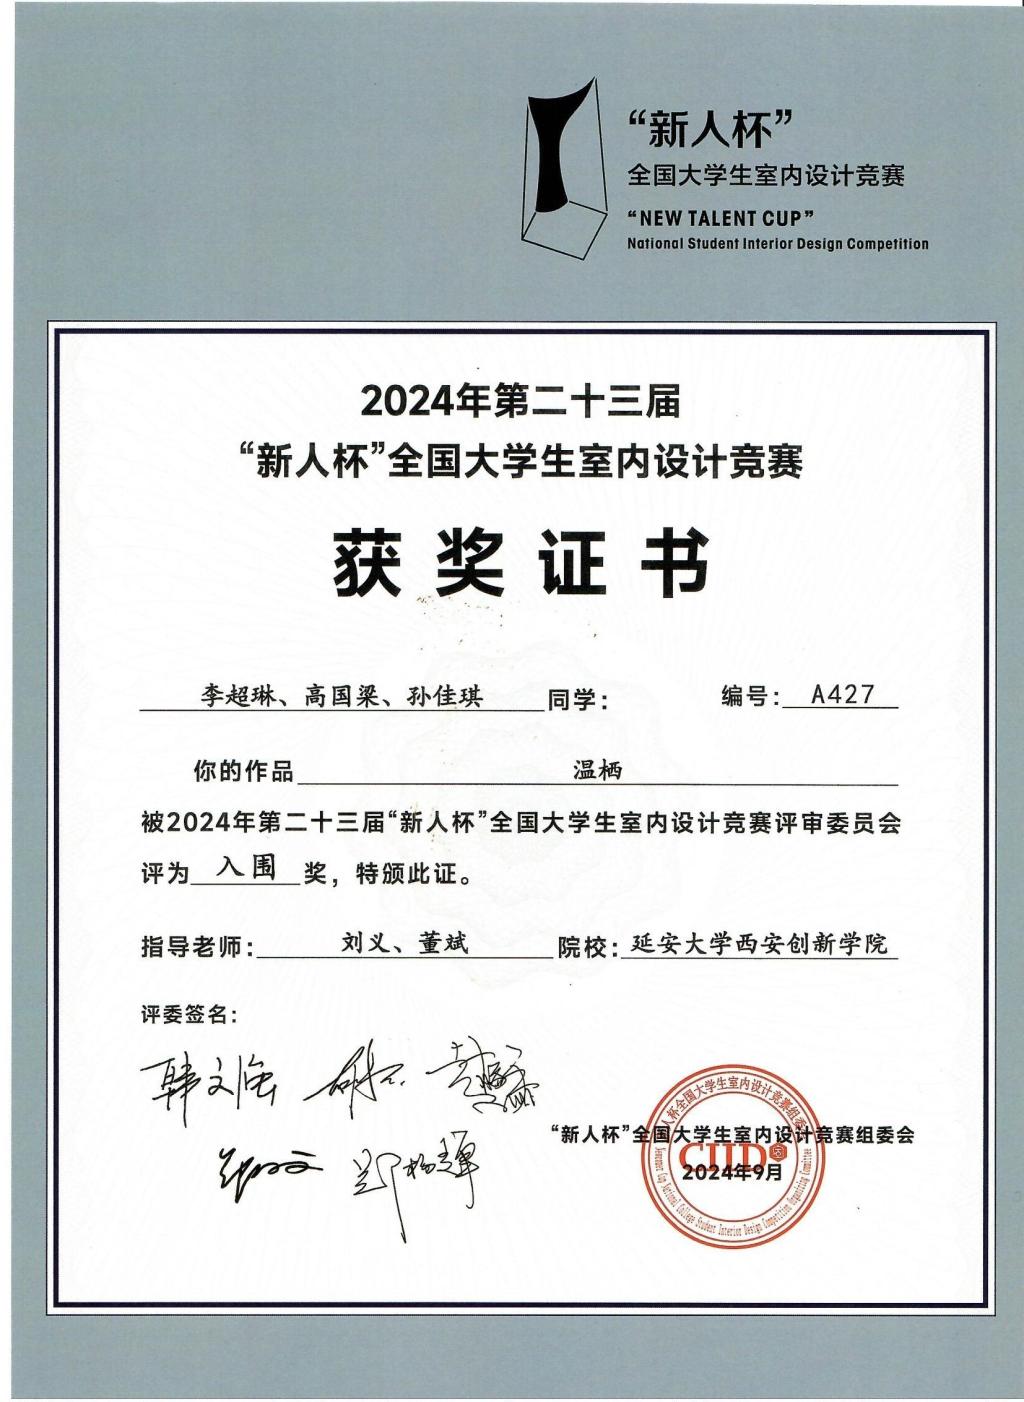 “新人杯”
全国大学生室内设计竞赛
“NEW TALENT CUP”
National Student Interior Design Competition
2024年第二十三届
“新人杯”全国大学生室内设计竞赛
获奖证书
李超琳、高国梁、孙佳琪 同学： 编号：A427
你的作品 温栖
被2024年第二十三届“新人杯”全国大学生室内设计竞赛评审委员会
评为 入围 奖，特颁此证。
指导老师：刘义、董斌 院校：延安大学西安创新学院
评委签名：
“新人杯”全国大学生室内设计竞赛组委会
CIID
2024年9月